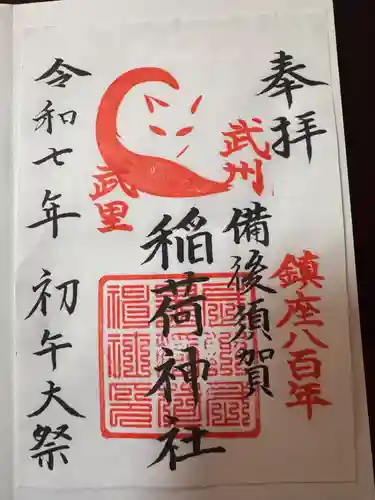 奉拝
武州
鎮座八百年
備後須賀
稲荷神社
武里
令和七年 初午大祭